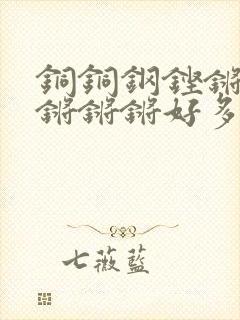 銅銅鋼鏗鏘
鏘鏘鏘好多
七薇藍